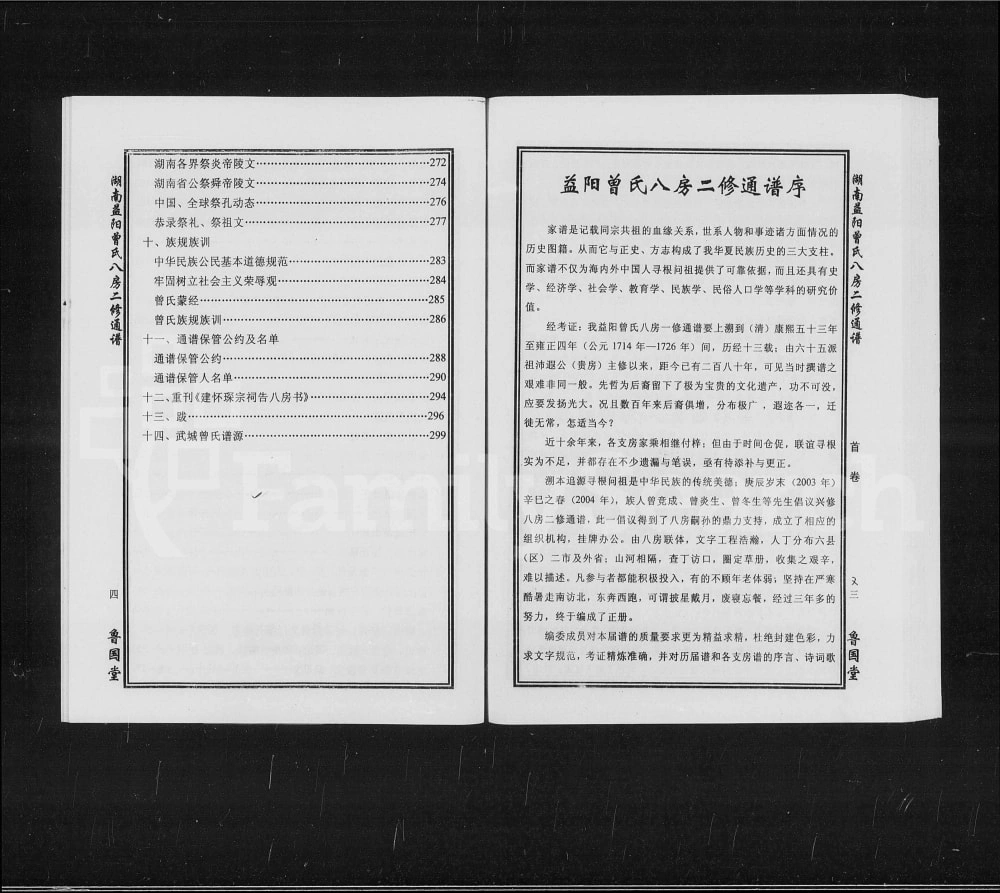 湖南益阳曾氏八房二修通谱
四
鲁国堂
湖南各界祭炎帝陵文……272
湖南省公祭舜帝陵文……274
中国、全球祭孔动态……276
恭录祭礼、祭祖文……277
十、族规族训
中华民族公民基本道德规范……283
牢固树立社会主义荣辱观……284
曾氏蒙经……285
曾氏族规族训……286
十一、通谱保管公约及名单
通谱保管公约……288
通谱保管人名单……290
十二、重刊《建怀琛宗祠告八房书》……294
十三、跋……296
十四、武城曾氏谱源……299
益阳曾氏八房二修通谱序
家谱是记载同宗共祖的血缘关系，世系人物和事迹诸方面情况的
历史图籍。从而它与正史、方志构成了我华夏民族历史的三大支柱。
而家谱不仅为海内外中国人寻根问祖提供了可靠依据，而且还具有史
学、经济学、社会学、教育学、民族学、民俗人口学等学科的研究价
值。
经考证：我益阳曾氏八房一修通谱要上溯到（清）康熙五十三年
至雍正四年（公元 1714 年—1726 年）间，历经十三载；由六十五派
祖沛遐公（贵房）主修以来，距今已有二百八十年，可见当时撰谱之
艰难非同一般。先哲为后裔留下了极为宝贵的文化遗产，功不可没，
应要发扬光大。况且数百年来后裔俱增，分布极广，遐迩各一，迁
徙无常，怎适当今？
近十余年来，各支房家乘相继付梓；但由于时间仓促，联谊寻根
实为不足，并都存在不少遗漏与笔误，亟有待添补与更正。
溯本追源寻根问祖是中华民族的传统美德；庚辰岁末（2003 年）
辛巳之春（2004 年），族人曾竞成、曾炎生、曾冬生等先生倡议兴修
八房二修通谱，此一倡议得到了八房嗣孙的鼎力支持，成立了相应的
组织机构，挂牌办公。由八房联体，文字工程浩瀚，人丁分布六县
（区）二市及外省；山河相隔，查丁访口，圈定草册，收集之艰辛，
难以描述。凡参与者都能积极投入，有的不顾年老体弱；坚持在严寒
酷暑走南访北，东奔西跑，可谓披星戴月，废寝忘餐，经过三年多的
努力，终于编成了正册。
编委成员对本届谱的质量要求更为精益求精，杜绝封建色彩，力
求文字规范，考证精炼准确，并对历届谱和各支房谱的序言、诗词歌
湖南益阳曾氏八房二修通谱
首卷
又三
鲁国堂
FamilySearch